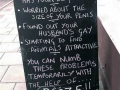 • WORRIED ABOUT THE
SIZE OF YOUR PENIS
• FOUND OUT YOUR
HUSBAND'S GAY
• STARTING TO FIND
ANIMALS ATTRACTIVE
YOU CAN NUMB
THESE PROBLEMS
TEMPORARILY WITH
THE HELP OF